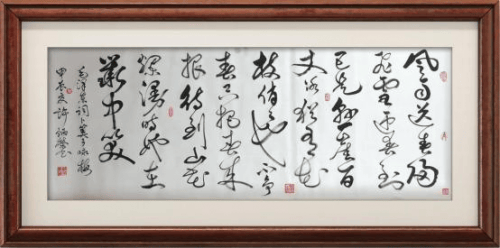 風雨送春歸
飛雪迎春到
已是懸崖百
丈冰猶有花
枝俏俏也不爭
春只把春來
報待到山花
爛漫時她在
叢中笑
毛澤東詞卜算子咏梅
甲辰夏許